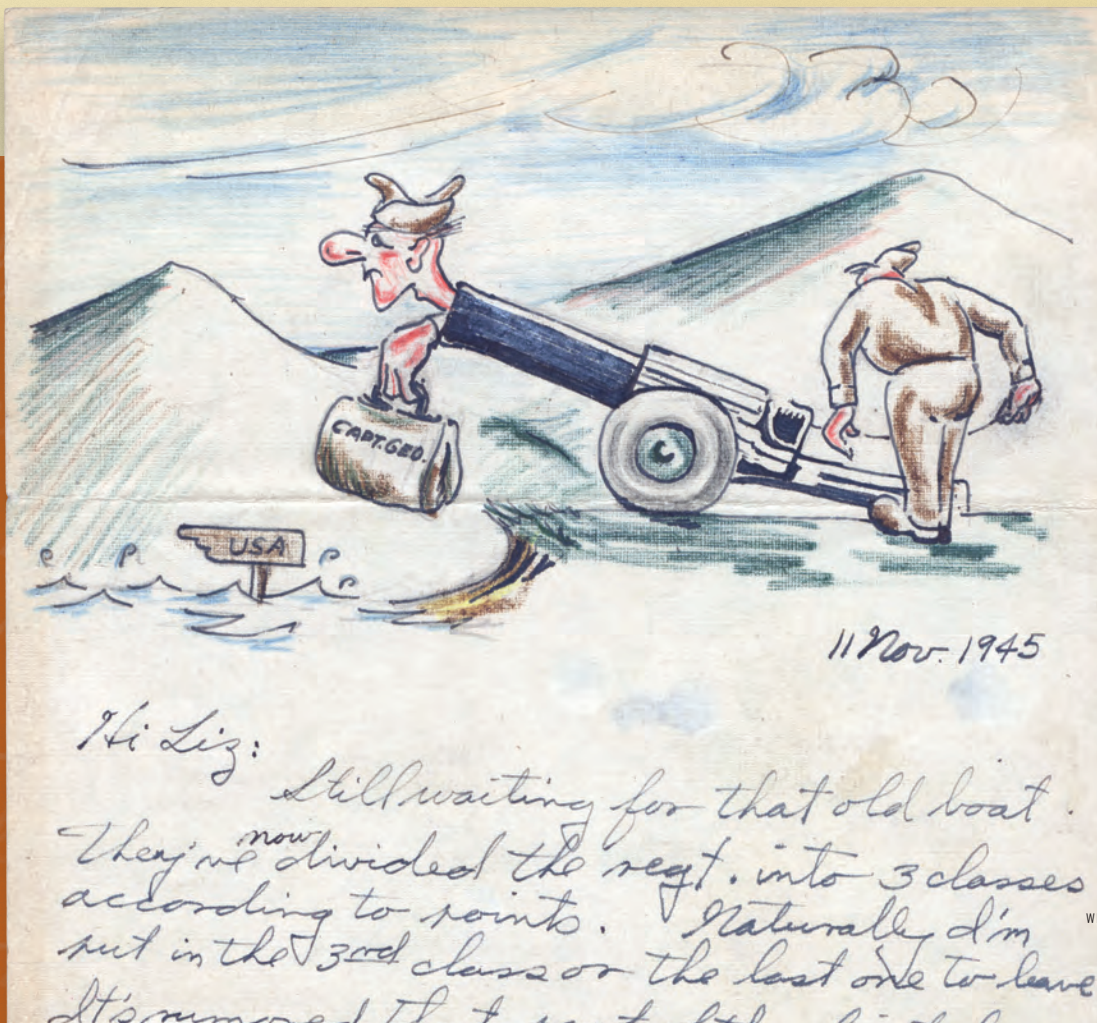 CAPT. GEO.
USA
11 Nov. 1945
Hi Liz:
Still waiting for that old boat.
They've now divided the regt. into 3 classes
according to points. Naturally I'm
put in the 3rd class or the last one to leave
It's rumored that
W